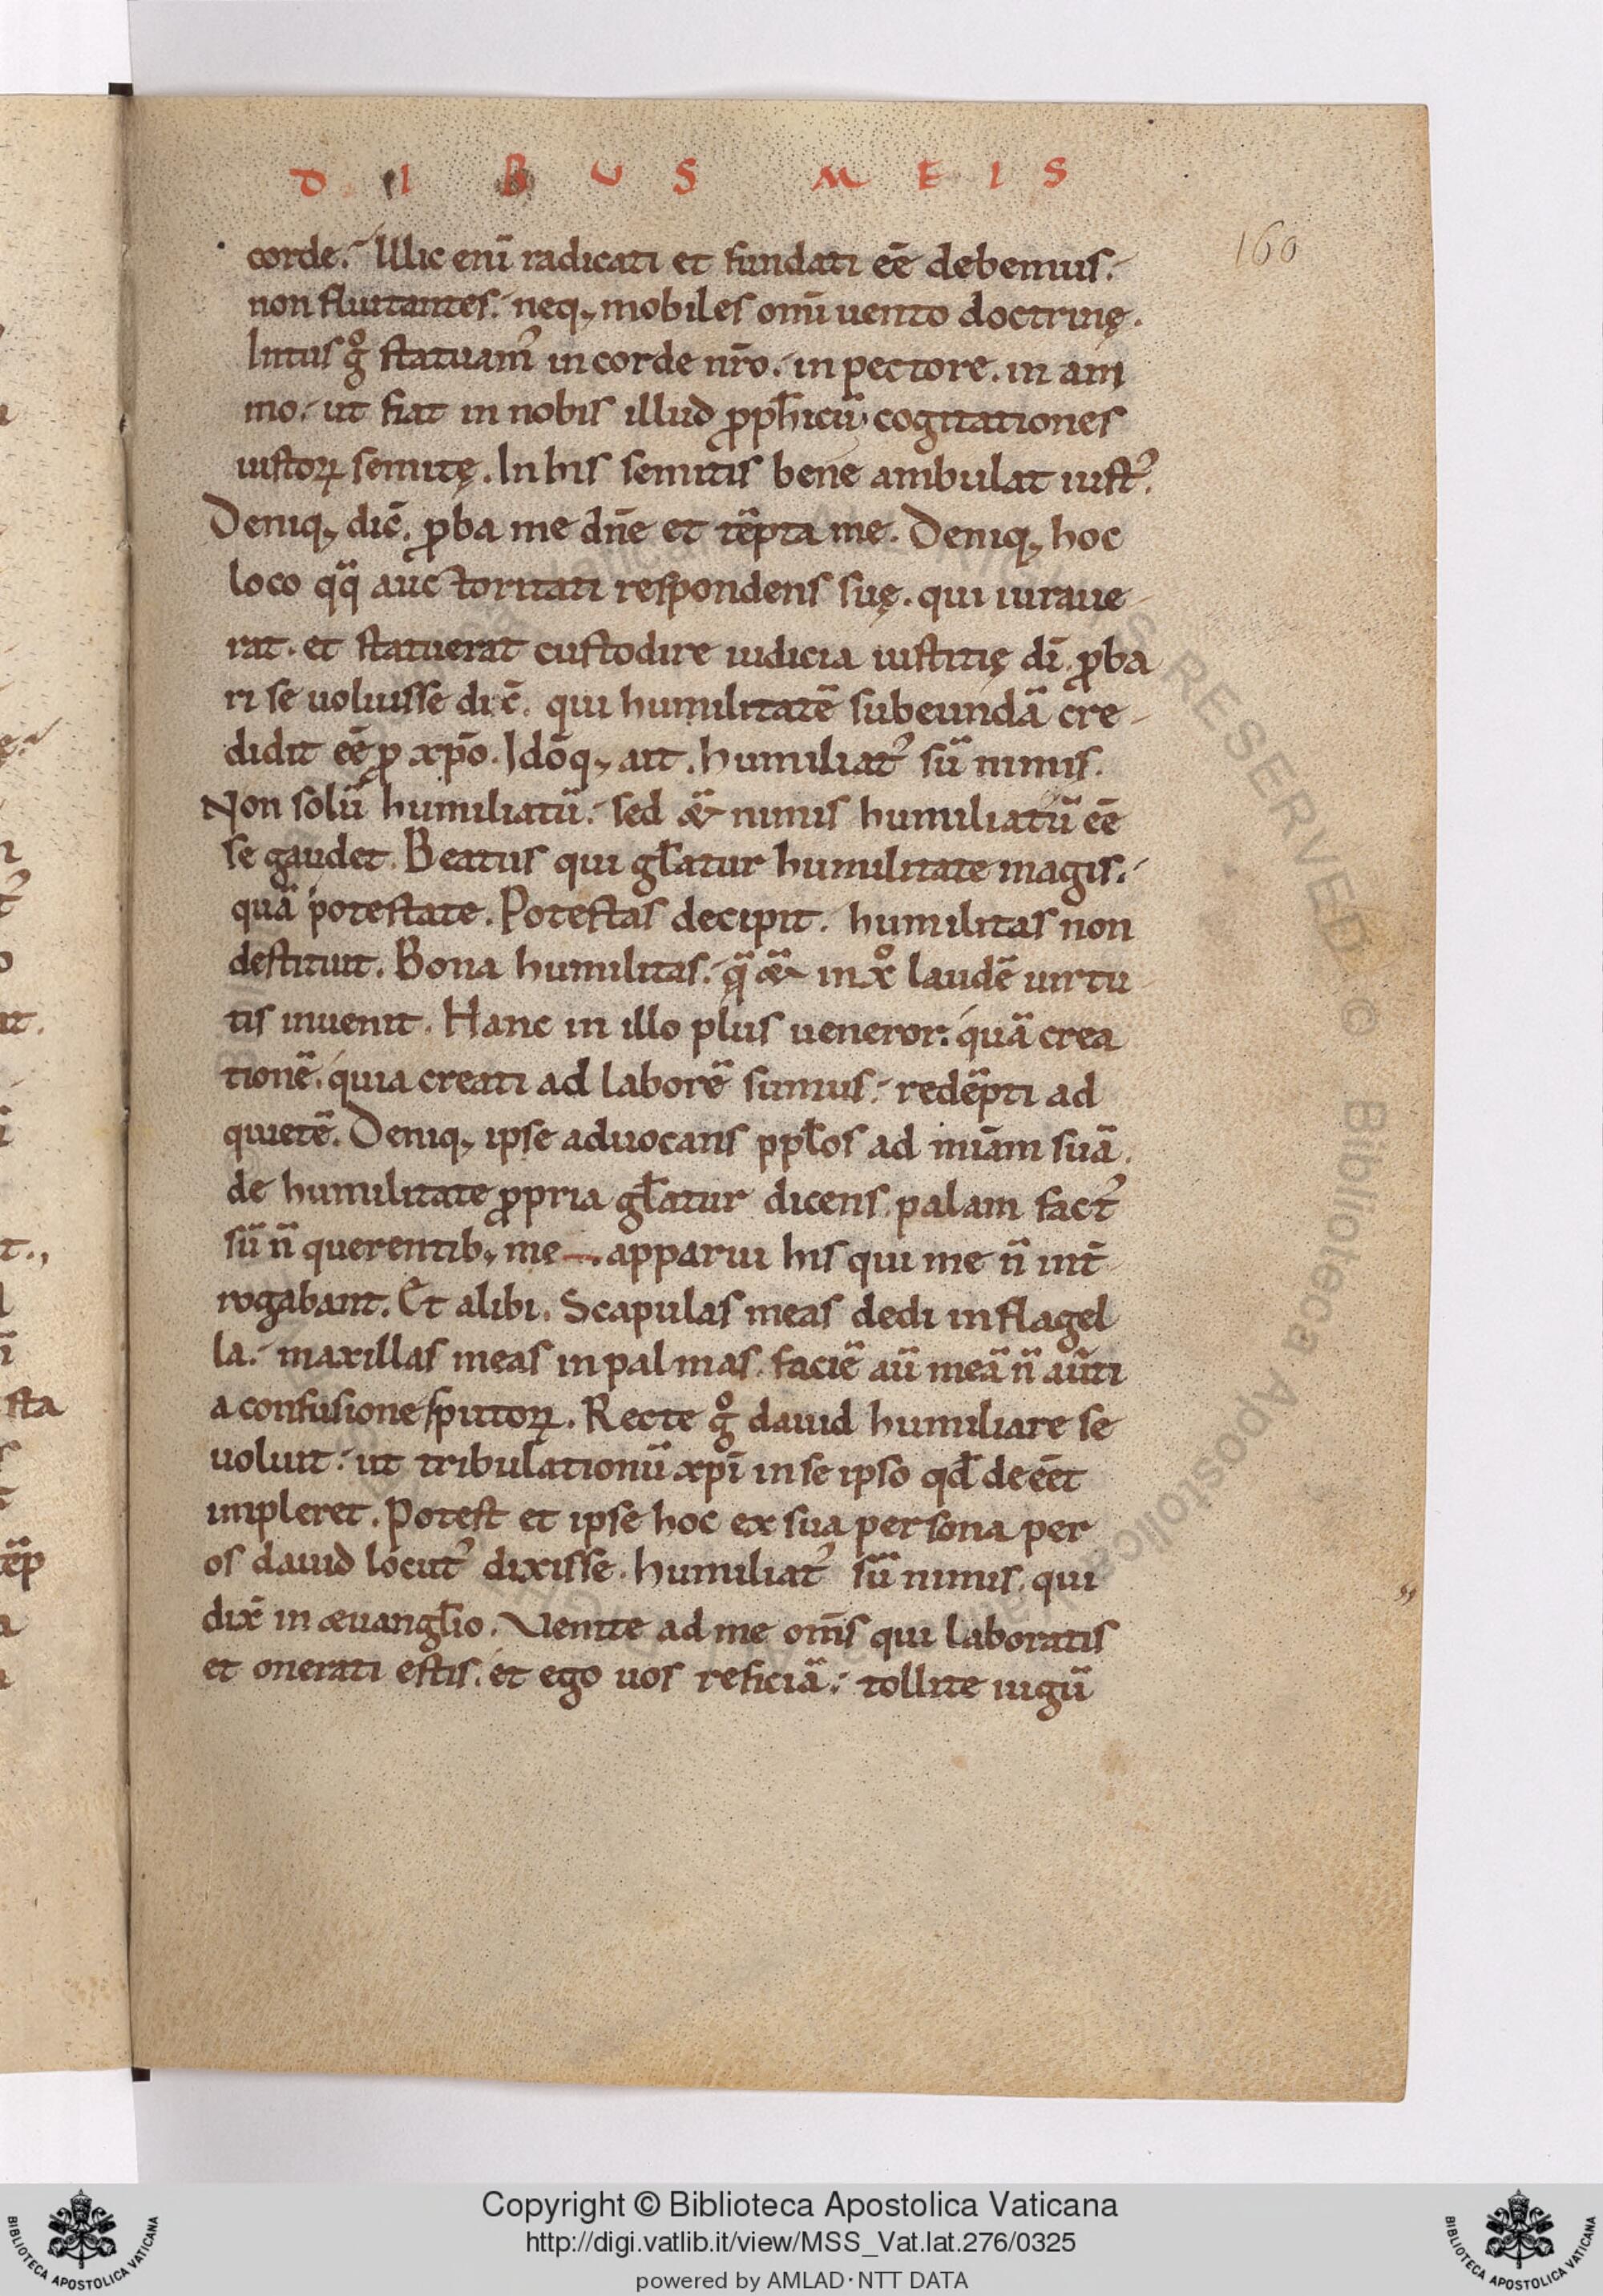 D I B U S M E I S
160
corde. Illic eni̅ radicati et fundati ee̅ debemus.
non fluitantes. neq; mobiles omi̅ uento doctrinę.
Intus gͦ statuamꝰ in corde nr̅o. in pectore. in ani
mo. ut fiat in nobis illud ꝓph̅icu̅ cogitationes
iustoꝝ semitę. In his semitis bene ambulat iustꝰ.
Deniq; dic̅. ꝓba me dn̅e et te̅pta me. Deniq; hoc
loco qq̅ auctoritati respondens suę. qui iuraue
rat. et statuerat custodire iudicia iustitię di̅. ꝓba
ri se uoluisse dic̅. qui humilitate̅ subeunda̅ cre
didit ee̅ ꝓ xp̅o. Ido̅q; ait. humiliatꝰ su̅ nimis.
Non solu̅ humiliatu̅. sed &̅ nimis humiliatu̅ ee̅
se gaudet. Beatus qui gl̅atur humilitate magis.
qua̅ potestate. Potestas decipit. humilitas non
destituit. Bona humilitas. q̅ &̅ in xͦ laude̅ uirtu
tis inuenit. Hanc in illo plus ueneror. qua̅ crea
tione̅. quia creati ad labore̅ sumus. rede̅pti ad
quiete̅. Deniq; ipse aduocans ppl̅os ad mi̅am sua̅.
de humilitate ꝓpria gl̅atur dicens. palam factꝰ
su̅ n̅ querentib; me. apparui his qui me n̅ int̅
rogabant. Et alibi. Scapulas meas dedi in flagel
la. maxillas meas in palmas. facie̅ au̅ mea̅ n̅ au̅ti
a confusione sputoꝝ. Recte gͦ dauid humiliare se
uoluit. ut tribulationu̅ xp̅i in se ipso qd̅ deee̅t
impleret. Potest et ipse hoc ex sua persona per
os dauid locutꝰ dixisse. humiliatꝰ su̅ nimis. qui
dix̅ in æuangl̅io. Venite ad me om̅s qui laboratis
et onerati estis. et ego uos reficia̅. tollite iugu̅
Copyright © Biblioteca Apostolica Vaticana
http://digi.vatlib.it/view/MSS_Vat.lat.276/0325
powered by AMLAD·NTT DATA
BIBLIOTECA APOSTOLICA VATICANA
BIBLIOTECA APOSTOLICA VATICANA